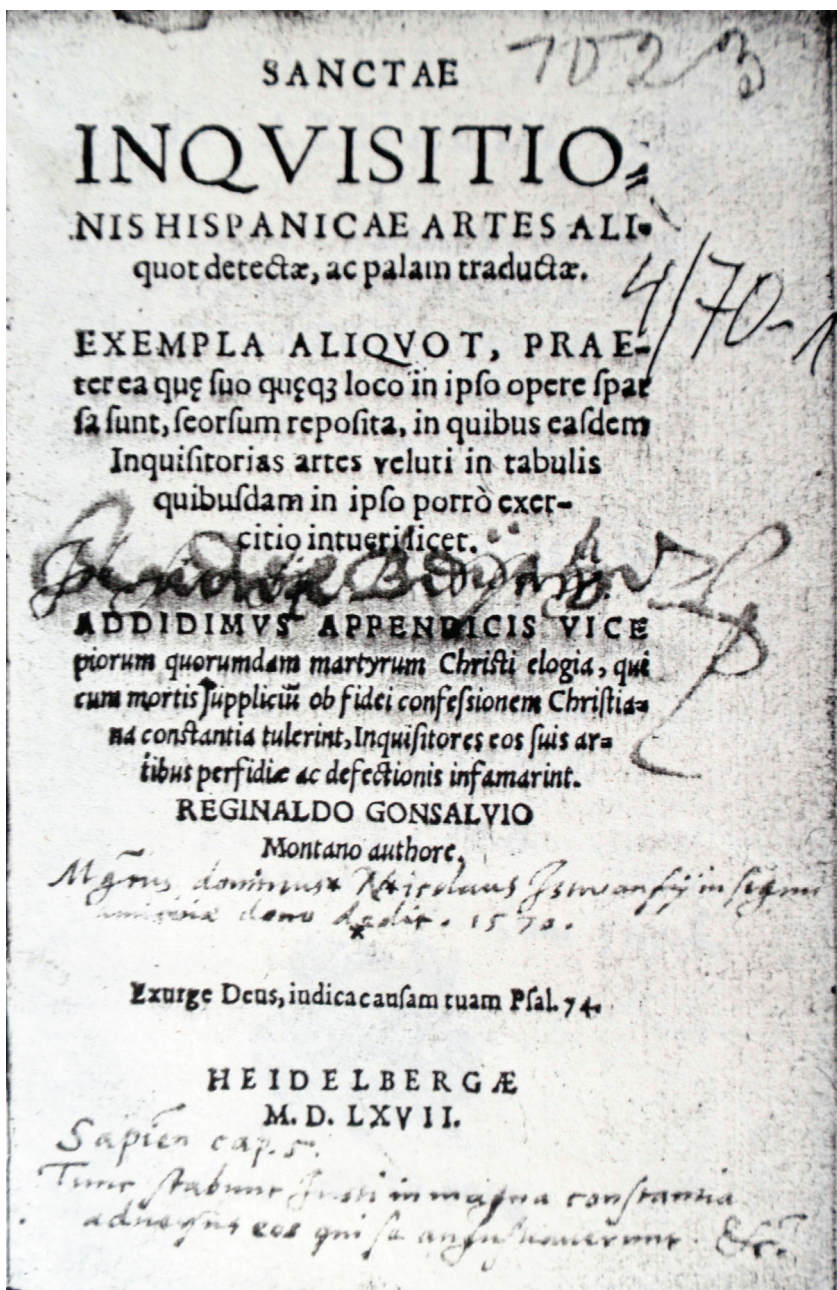 SANCTAE
7023
INQVISITIO⸗
NIS HISPANICAE ARTES ALI⸗
quot detectæ, ac palam traductæ.
4/70-1
EXEMPLA ALIQVOT, PRAE⸗
terea quę suo quęqꝫ loco in ipso opere spar
sa sunt, seorsum reposita, in quibus easdem
Inquisitorias artes veluti in tabulis
quibusdam in ipso porrò exer-
citio intueri licet.
ADDIDIMVS APPENDICIS VICE
piorum quorumdam martyrum Christi elogia, qui
cum mortis suppliciũ ob fidei confessionem Christia⸗
na constantia tulerint, Inquisitores eos suis ar⸗
tibus perfidiæ ac defectionis infamarint.
REGINALDO GONSALVIO
Montano authore,
M̃grus dominus Nicolaus Istwanfij in signu
amicitiæ dono dedit. 1570.
Exurge Deus, iudica causam tuam Psal. 74.
HEIDELBERGÆ
M. D. LXVII.
Sapien̄ cap. 5.
Tunc stabunt Justi in magna constantia
aduersus eos qui se angustiauerunt. &c.